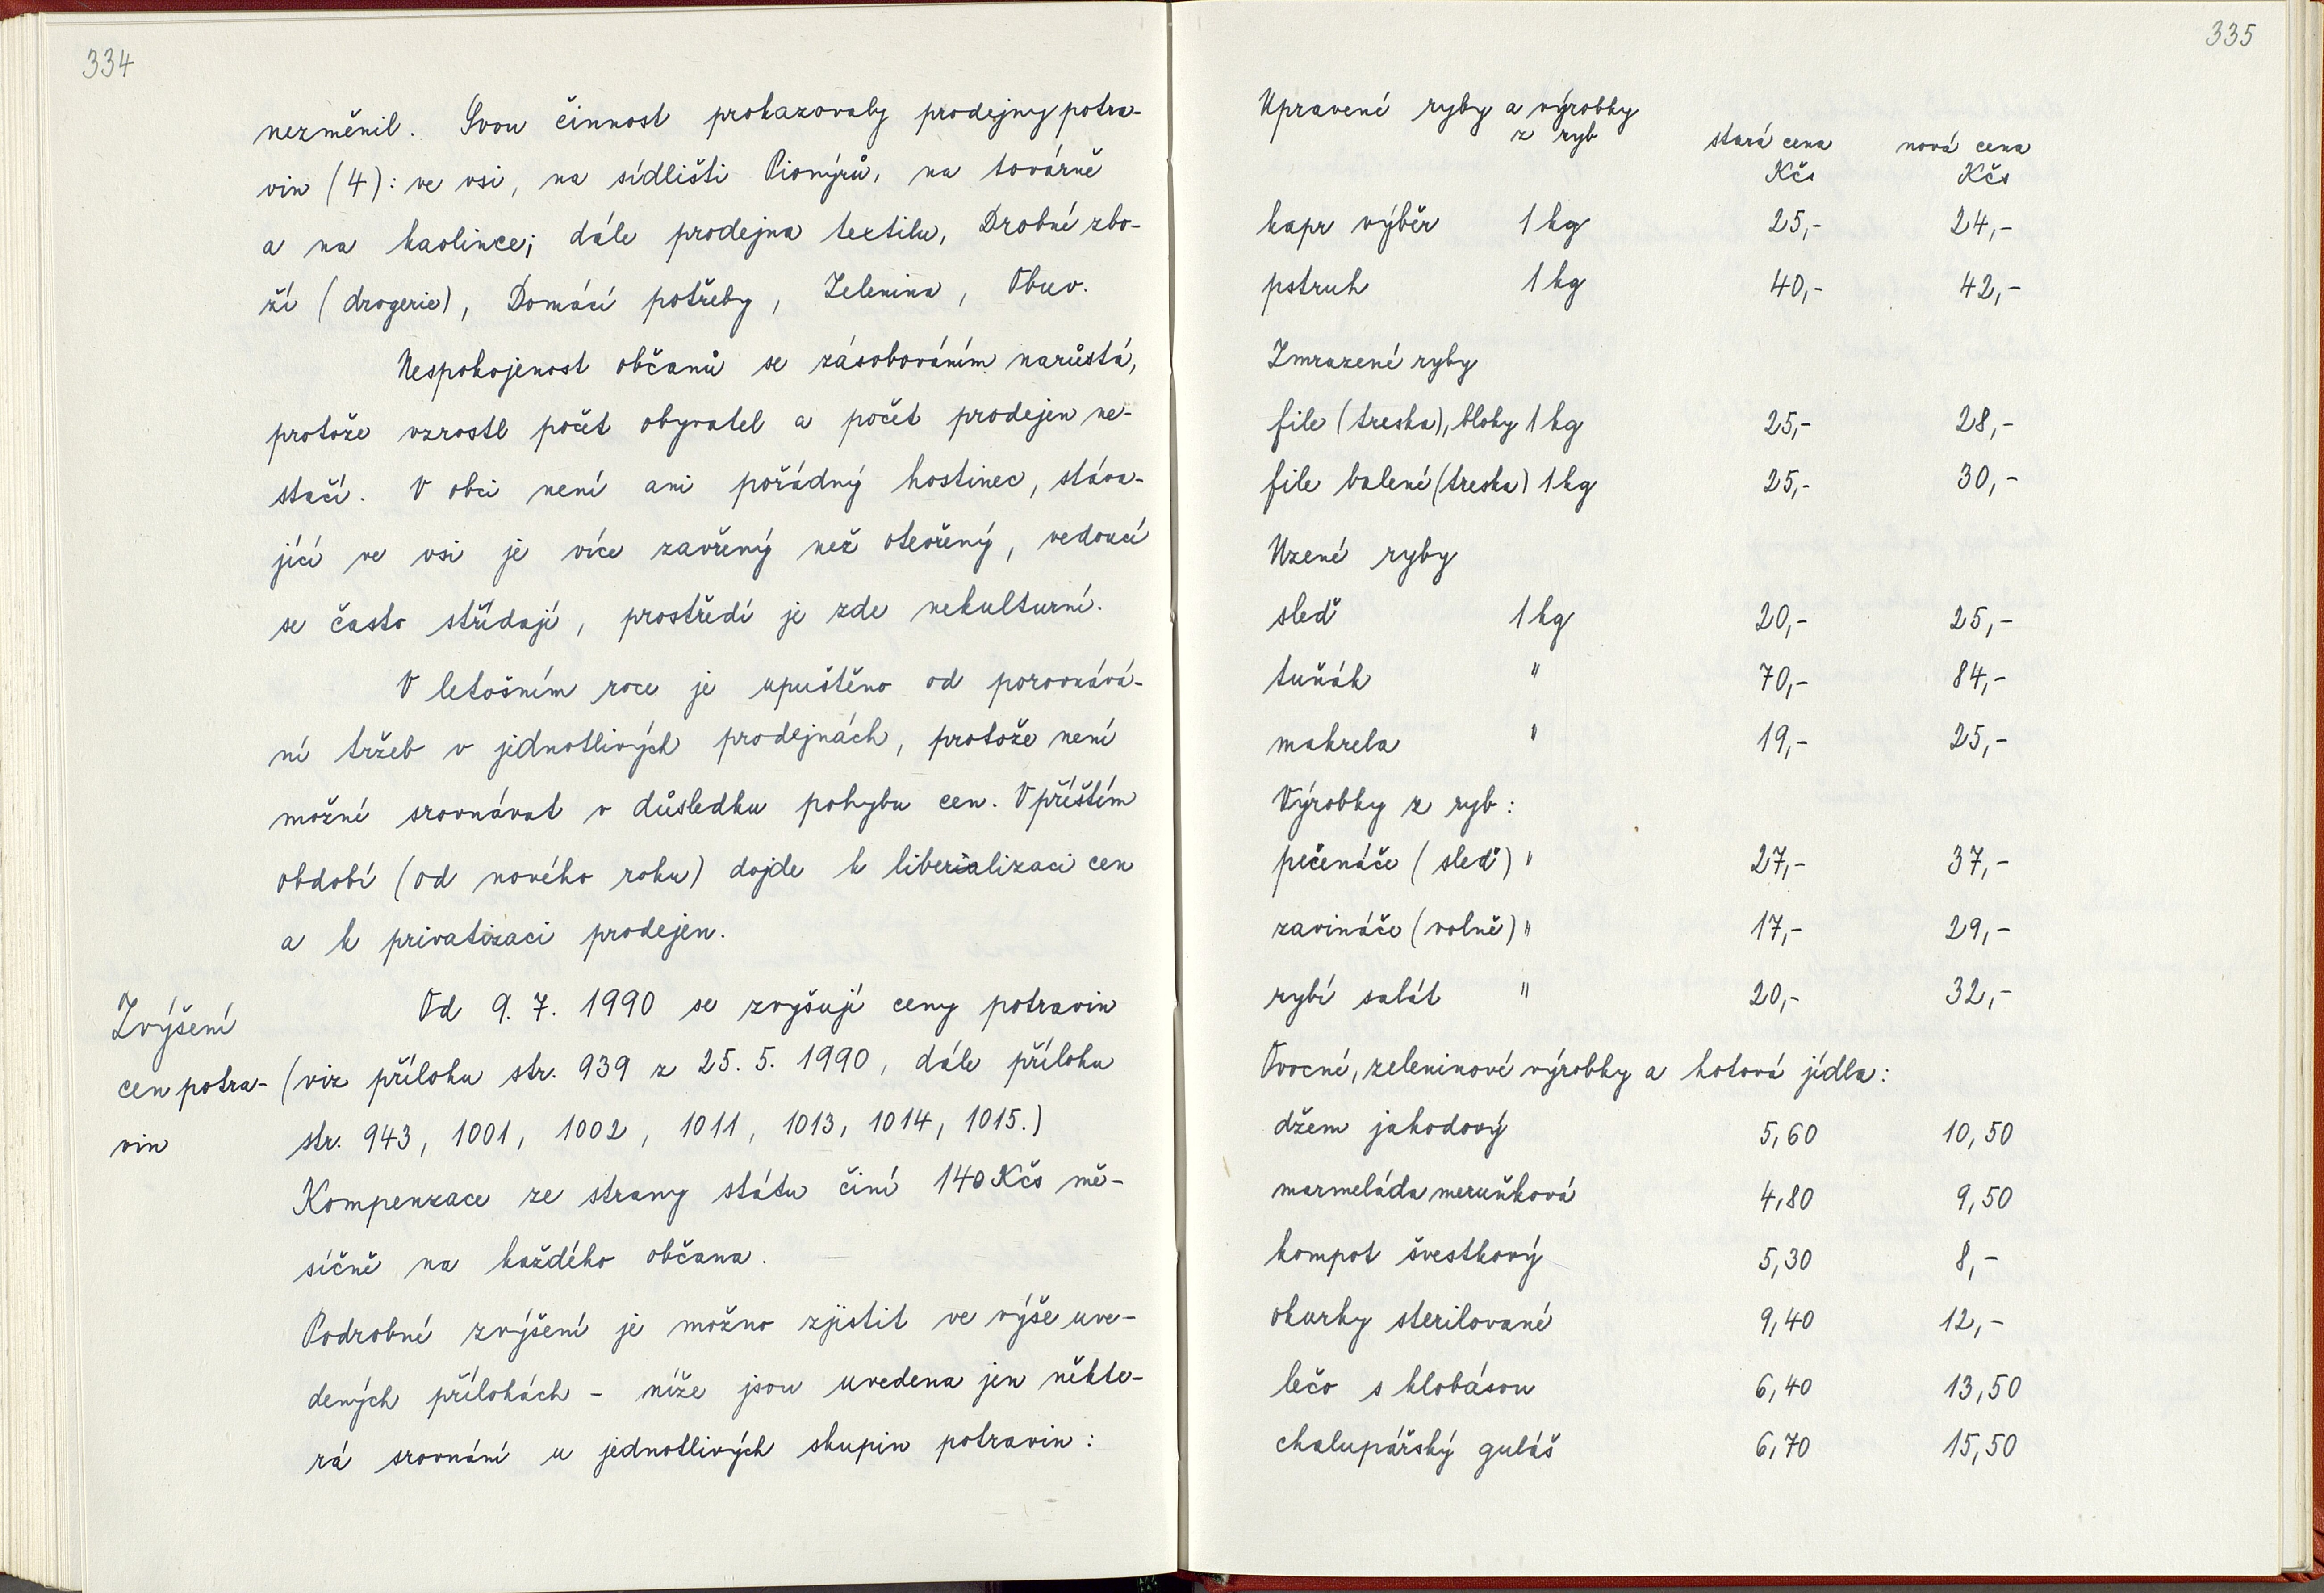 334
nezměnil. Svou činnost prokazovaly prodejny potra-
vin (4): ve vsi, na sídlišti Pionýrů, na továrně
a na kaolince; dále prodejna textilu, Drobné zbo-
ží (drogerie), Domácí potřeby, Zelenina, Obuv.
Nespokojenost občanů se zásobováním narůstá,
protože vzrostl počet obyvatel a počet prodejen ne-
stačí. V obci není ani pořádný hostinec, stáva-
jící ve vsi je více zavřený než otevřený, vedoucí
se často střídají, prostředí je zde nekulturní.
V letošním roce je upuštěno od porovnává-
ní tržeb v jednotlivých prodejnách, protože není
možné srovnávat v důsledku pohybu cen. V příštím
období (od nového roku) dojde k liberializaci cen
a k privatizaci prodejen.
Zvýšení
cen potra-
vin
Od 9. 7. 1990 se zvyšují ceny potravin
(viz přílohu str. 939 z 25. 5. 1990, dále přílohu
str. 943, 1001, 1002, 1011, 1013, 1014, 1015.)
Kompenzace ze strany státu činí 140 Kčs mě-
síčně na každého občana.
Podrobné zvýšení je možno zjistit ve výše uve-
dených přílohách - níže jsou uvedena jen někte-
rá srovnání u jednotlivých skupin potravin:
335
Upravené ryby a výrobky
z ryb stará cena nová cena
Kčs Kčs
kapr výběr 1 kg 25,- 24,-
pstruh 1 kg 40,- 42,-
Zmrazené ryby
file (treska), bloky 1 kg 25,- 28,-
file balené (treska) 1 kg 25,- 30,-
Uzené ryby
sleď 1 kg 20,- 25,-
tuňák " 70,- 84,-
makrela " 19,- 25,-
Výrobky z ryb:
pečenáče (sleď) " 27,- 37,-
zavináče (volně) " 17,- 29,-
rybí salát " 20,- 32,-
Ovocné, zeleninové výrobky a hotová jídla:
džem jahodový 5,60 10,50
marmeláda meruňková 4,80 9,50
kompot švestkový 5,30 8,-
okurky sterilované 9,40 12,-
lečo s klobásou 6,40 13,50
chalupářský guláš 6,70 15,50